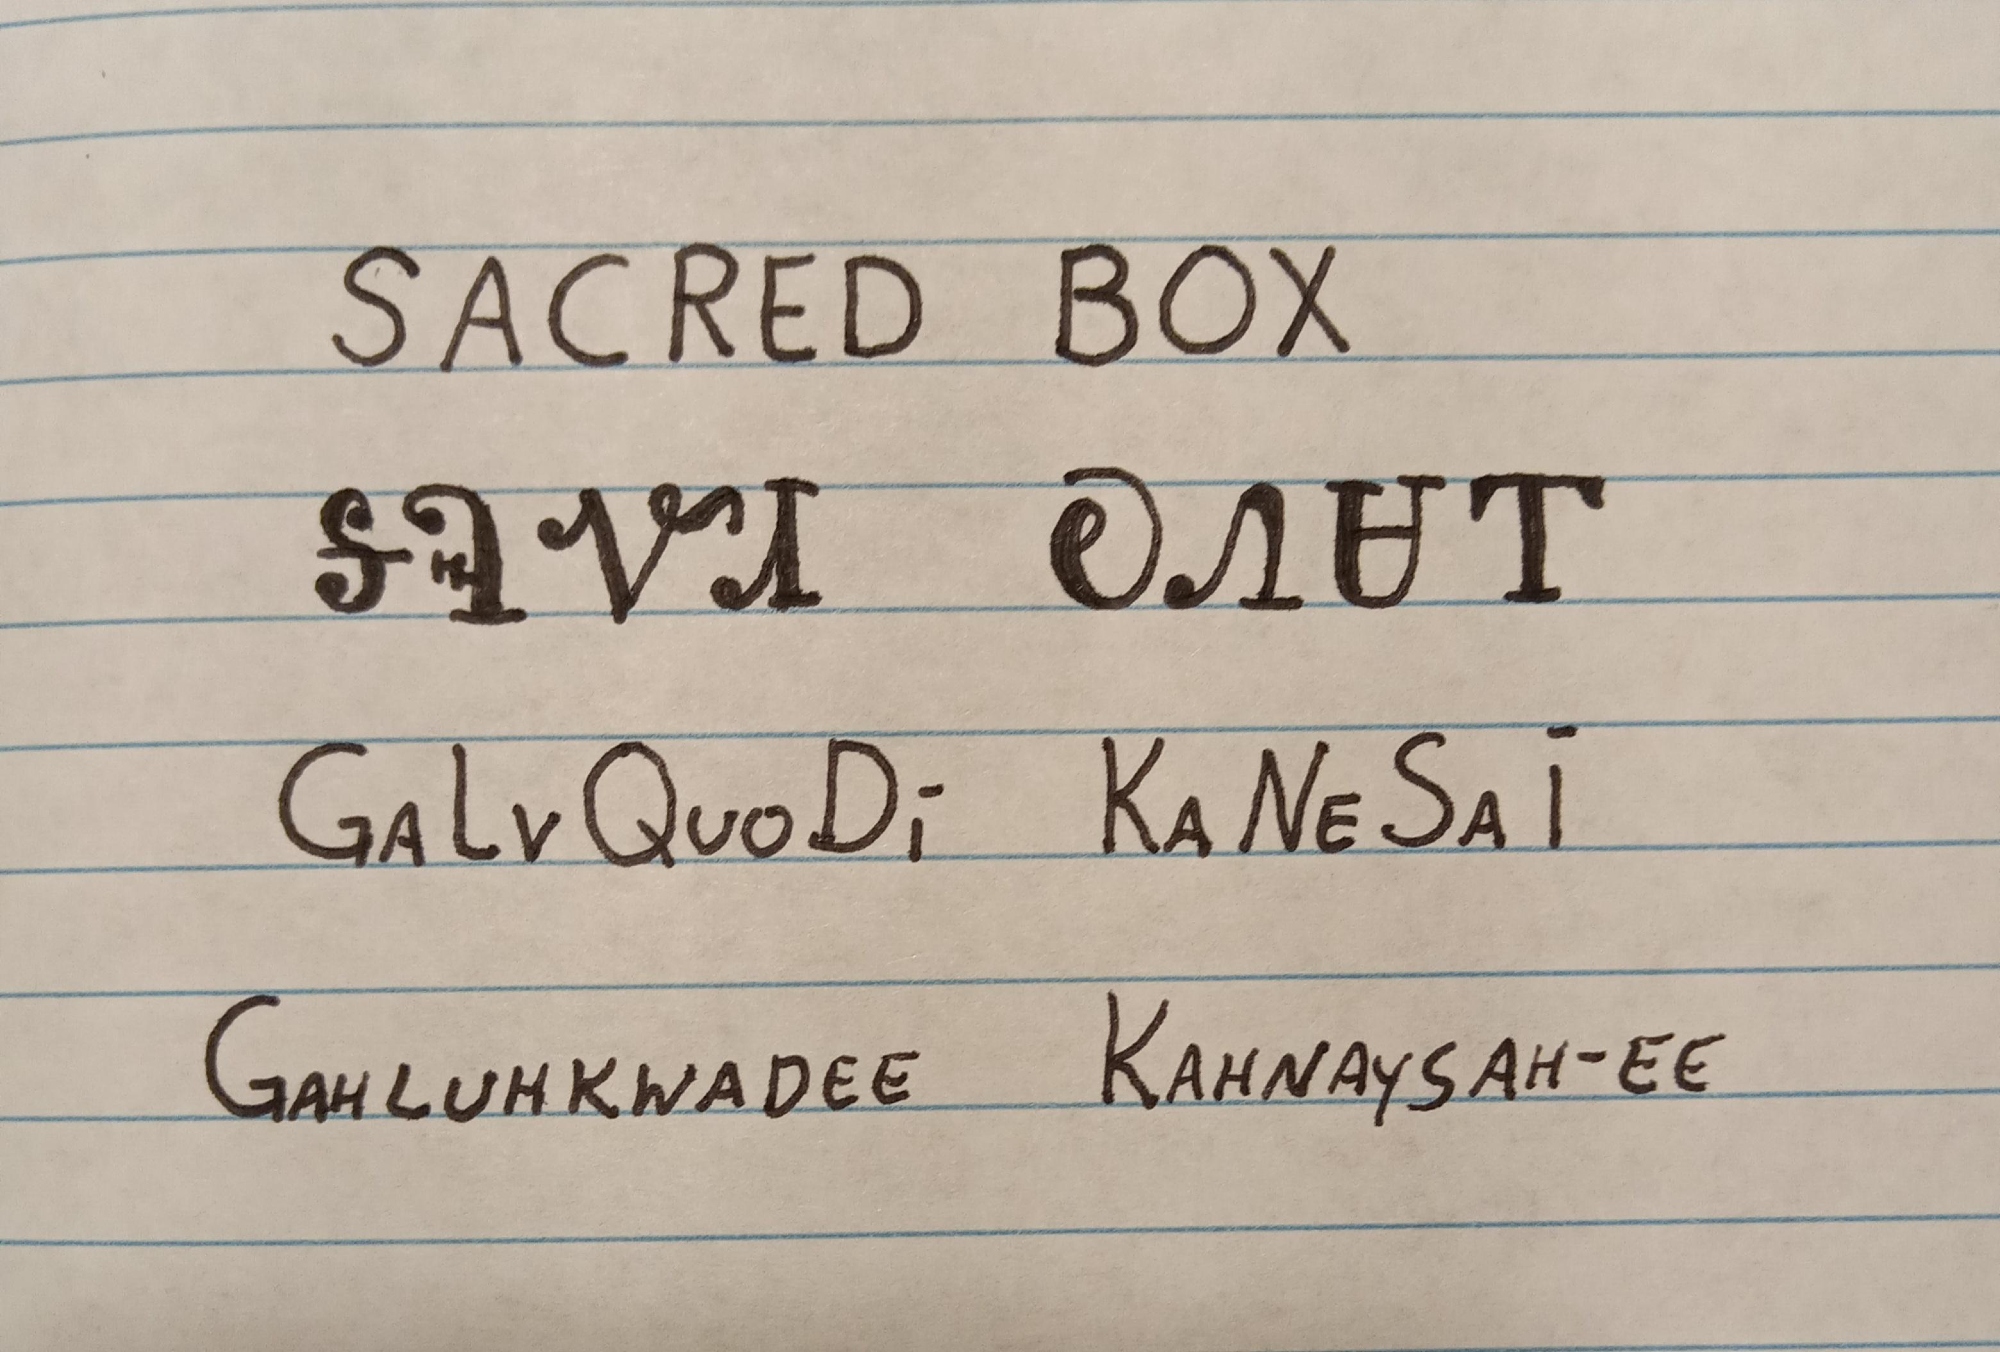 SACRED BOX
ᎦᎸᏉᏗ ᎧᏁᏌᎢ
GALVQUODI KANESAI
GAHLUHKWADEE KAHNAYSAH-EE